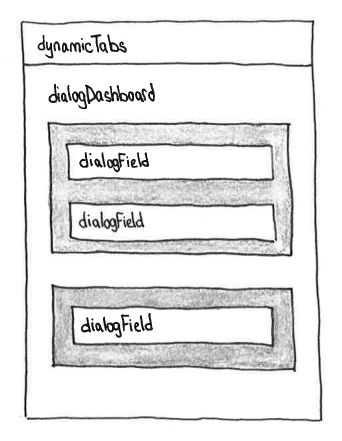 dynamicTabs
dialogDashboard
dialogField
dialogField
dialogField